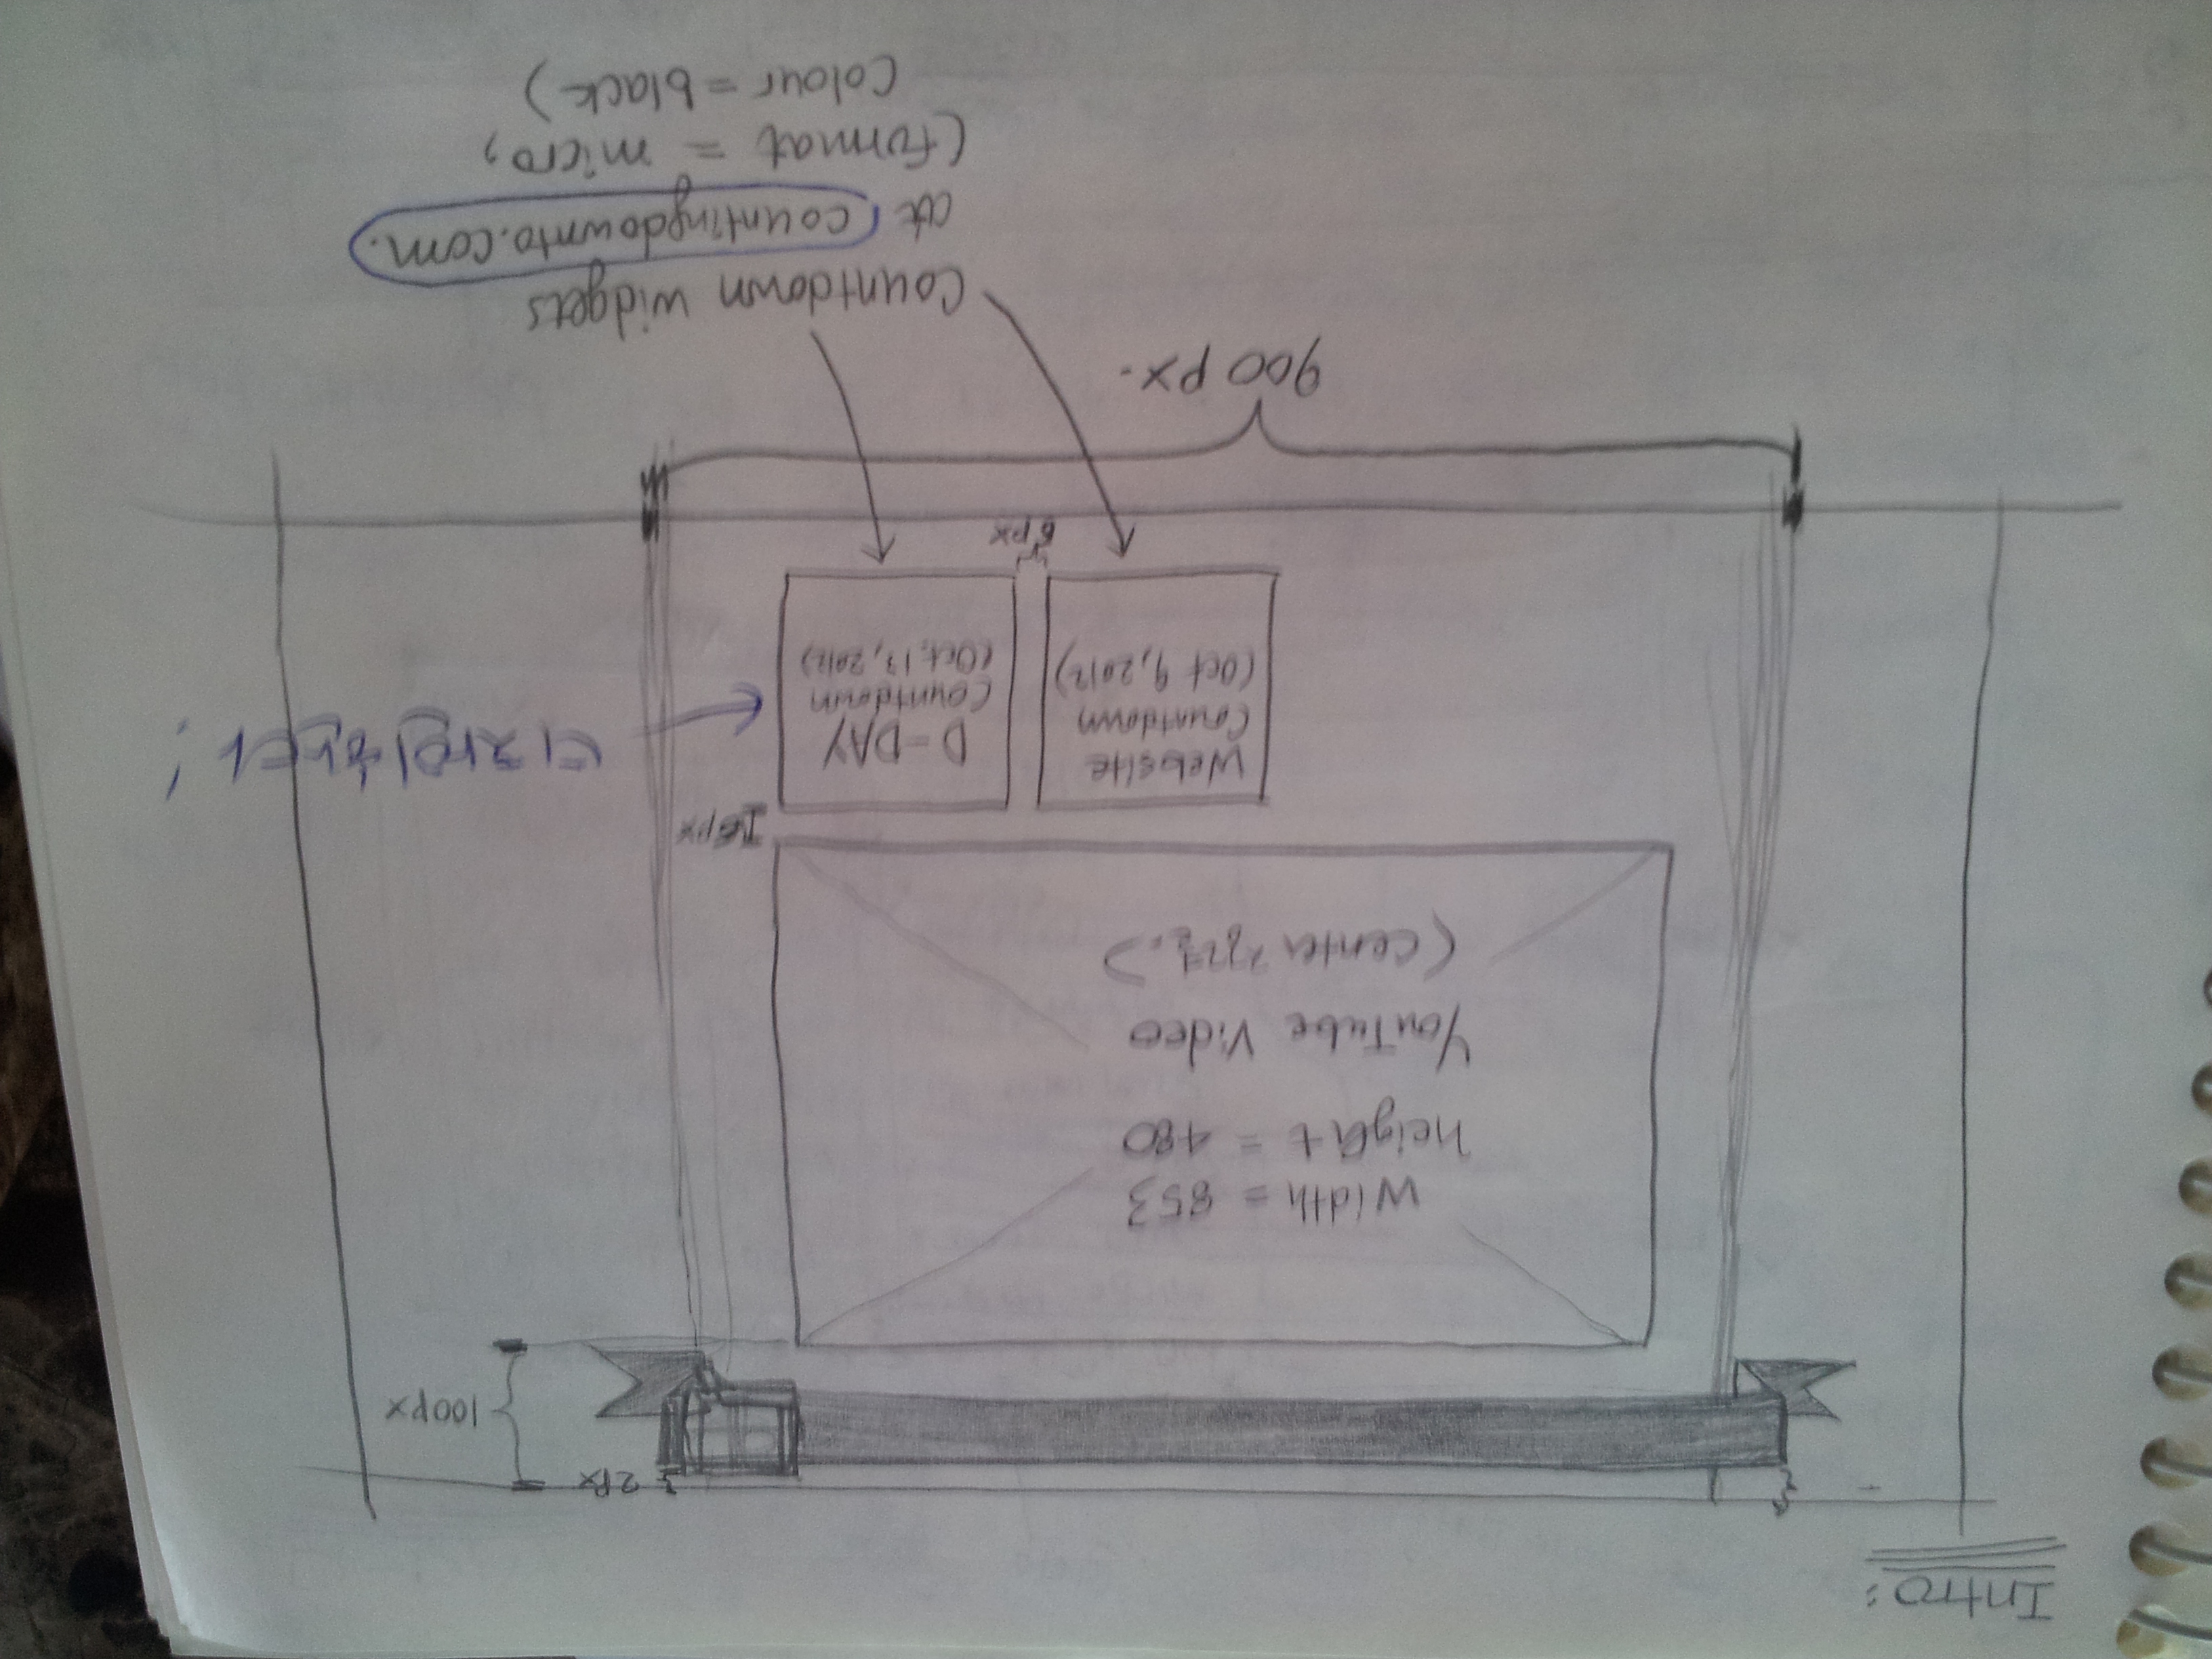 Intro:
2px
100px
width = 853
height = 480
YouTube Video
(center 정렬.)
px
Website
Countdown
(Oct 9, 2012)
D-DAY
Countdown
(Oct. 13, 2012)
디자인한다!
px
900 px.
Countdown widgets
at countingdownto.com.
(format = micro,
colour = black)